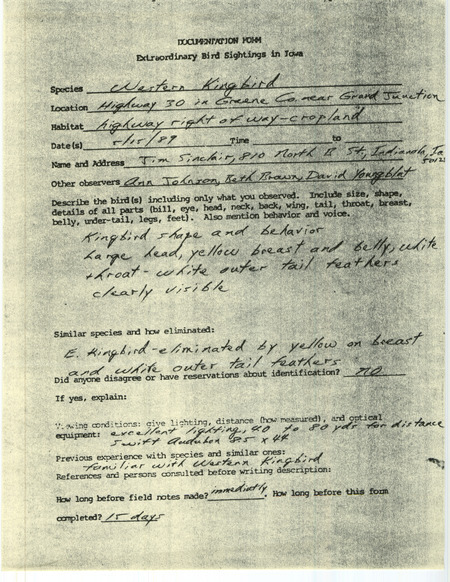 DOCUMENTATION FORM
Extraordinary Bird Sightings in Iowa
Species Western Kingbird
Location Highway 30 in Greene Co. near Grand Junction
Habitat highway right of way-cropland
Date(s) 5/15/89 Time to
Name and Address Jim Sinclair, 810 North B St, Indianola, Ia
Other observers Ann Johnson, Beth Brown, David Youngblut
Describe the bird(s) including only what you observed. Include size, shape,
details of all parts (bill, eye, head, neck, back, wing, tail, throat, breast,
belly, under-tail, legs, feet). Also mention behavior and voice.
Kingbird shape and behavior
Large head, yellow breast and belly, white
throat - white outer tail feathers
clearly visible
Similar species and how eliminated:
E. Kingbird - eliminated by yellow on breast
and white outer tail feathers
Did anyone disagree or have reservations about identification? no
If yes, explain:
Viewing conditions: give lighting, distance (how measured), and optical
equipment: excellent lighting, 40 to 80 yds for distance
Swift Audubon 8.5 x 44
Previous experience with species and similar ones:
familiar with Western Kingbird
References and persons consulted before writing description:
How long before field notes made? immediately. How long before this form
completed? 15 days